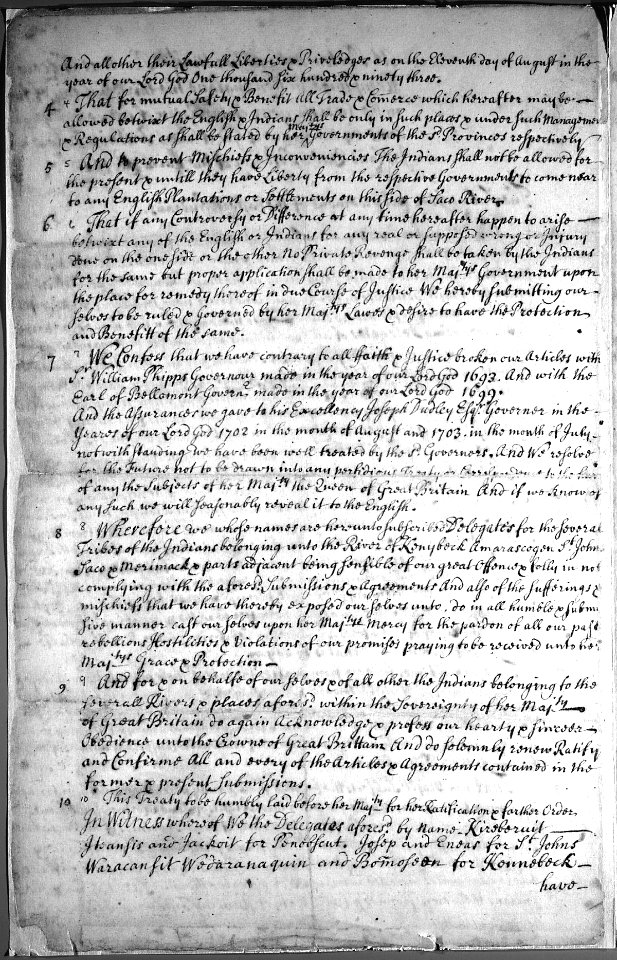 And all other their Lawfull Liberties & Priveledges as on the Eleventh day of August in the
year of our Lord God One thousand six hundred & ninety three.
4 4 That for mutual Safety & Benefit All Trade & Comerce which hereafter may be
allowed betwixt the English & Indians shall be only in such places & under such Managemen
& Regulations as shall be stated by her Majtys Governments of the sd. Provinces respectively
5 5 And to prevent Mischiefs & Inconveniencies The Indians shall not be allowed for
the present & untill they have Liberty from the respective Governments to come near
to any English Plantations or Settlements on this side of Saco River.
6 6 That if any Controversy or Difference at any time hereafter happen to arise
betwixt any of the English or Indians for any real or supposed wrong or Injury
done on the one side or the other No Private Revenge shall be taken by the Indians
for the same but proper application shall be made to her Majtys Government upon
the place for remedy thereof in due Course of Justice We hereby submitting our
selves to be ruled & governed by her Majtys Lawes & desire to have the Protection
and Benefitt of the same.
7 7 We Confess that we have contrary to all ffaith & Justice broken our Articles with
Sr. William Phipps Governour made in the year of our Lord God 1693. And with the
Earl of Bellamont Governr. made in the year of our Lord God 1699.
And the Assurances we gave to his Excellency Joseph Dudley Esqr Governer in the
Yeares of our Lord God 1702 in the month of August and 1703. in the month of July
notwithstanding we have been well treated by the sd. Governers. And We resolve
for the Future not to be drawn into any perfidious Treaty or Correspondence to the
of any the Subjects of her Majty the Queen of Great Britain And if we know of
any such we will seasonably reveal it to the English.
8 8 Wherefore we whose names are hereunto subscribed Delegates for the several
Tribes of the Indians belonging unto the River of Kenybeck Amarascogen St. Johns
Saco & Merimack & parts adjacent being sensible of our great Offence & folly in not
complying with the aforesd. Submissions & Agreements And also of the sufferings &
mischiefs that we have thereby exposed our selves unto. do in all humble & submi
sive manner cast our selves upon her Majtys Mercy for the pardon of all our past
rebellions Hostilities & Violations of our promises praying to be received unto her
Majtys Grace & Protection
9 9 And for & on behalfe of our selves & of all other the Indians belonging to the
severall Rivers & places aforesd. within the Sovereignty of her Majty
of Great Britain do again Acknowledge & profess our hearty & sincere
Obedience unto the Crowne of Great Brittain And do solemnly renew Ratify
and Confirme All and every of the Articles & Agreements contained in the
former & present Submissions.
10 10 This Treaty to be humbly laid before her Majty for her Ratification & farther Order
In Witness whereof We the Delegates aforesd. by name Kireberuit
Iteansis and Jackoit for Penobscut. Josep and Eneas for St. Johns
Waracansit Wedaranaquin and Bomoseen for Kennebeck
have